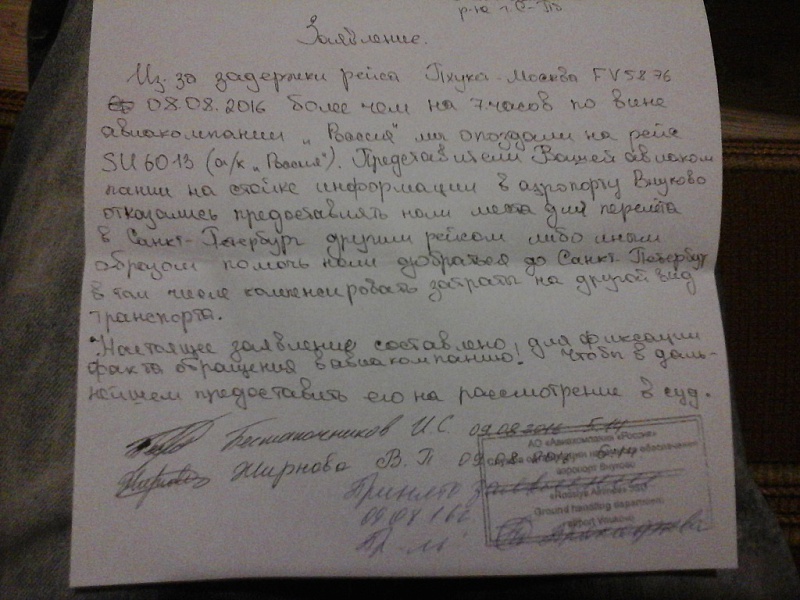 р-ка г. С-Пб
Заявление.
Из-за задержки рейса Пхукет-Москва FV5876
08.08.2016 более чем на 7 часов по вине
авиакомпании „Россия" мы опоздали на рейс
SU6013 (а/к „Россия"). Представители Вашей авиаком
пании на стойке информации в аэропорту Внуково
отказались предоставлять нам места для перелёта
в Санкт-Петербург другим рейсом либо иным
образом помочь нам добраться до Санкт Петербург
в том числе компенсировать затраты на другой вид
транспорта.
Настоящее заявление составлено для фиксации
факта обращения в авиакомпанию! Чтобы в даль-
нейшем предоставить его на рассмотрение в суд.
И.С. 09.08.2016 5.14
Жирнова В.П 09.08.2016
Принято
АО «Авиакомпания «Россия»
аэропорт Внуково
«Rossiya Airlines» JSC
Ground handling department
airport Vnukovo